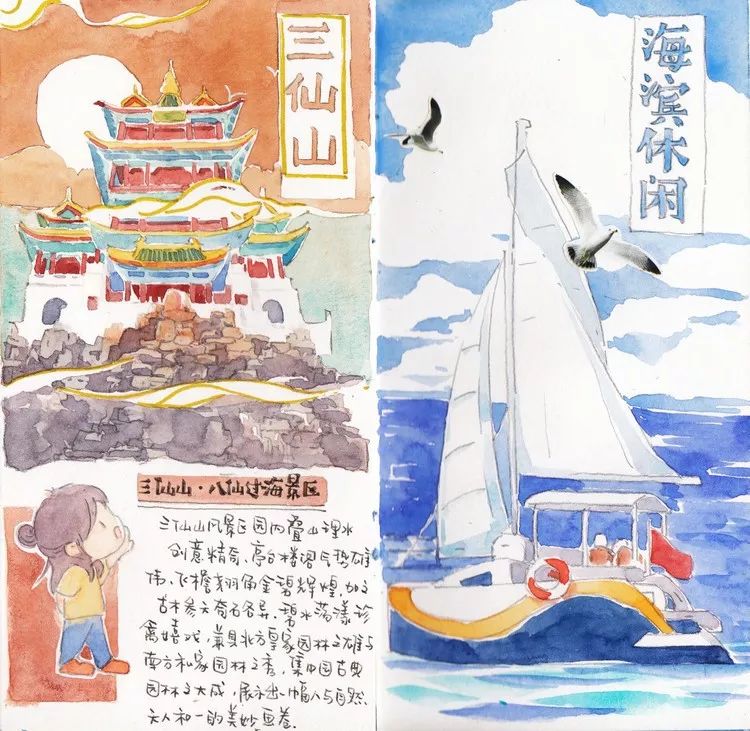 三仙山
三仙山·八仙过海景区
三仙山风景区园内叠山理水
创意精奇、亭台楼阁气势雄
伟、飞檐翔角金碧辉煌,加之
古木参天奇石各异、碧水荡漾珍
禽嬉戏,兼具北方皇家园林之雄与
南方私家园林之秀,集中国古典
园林之大成,展示出一幅人与自然
天人和一的美妙画卷.
海滨休闲